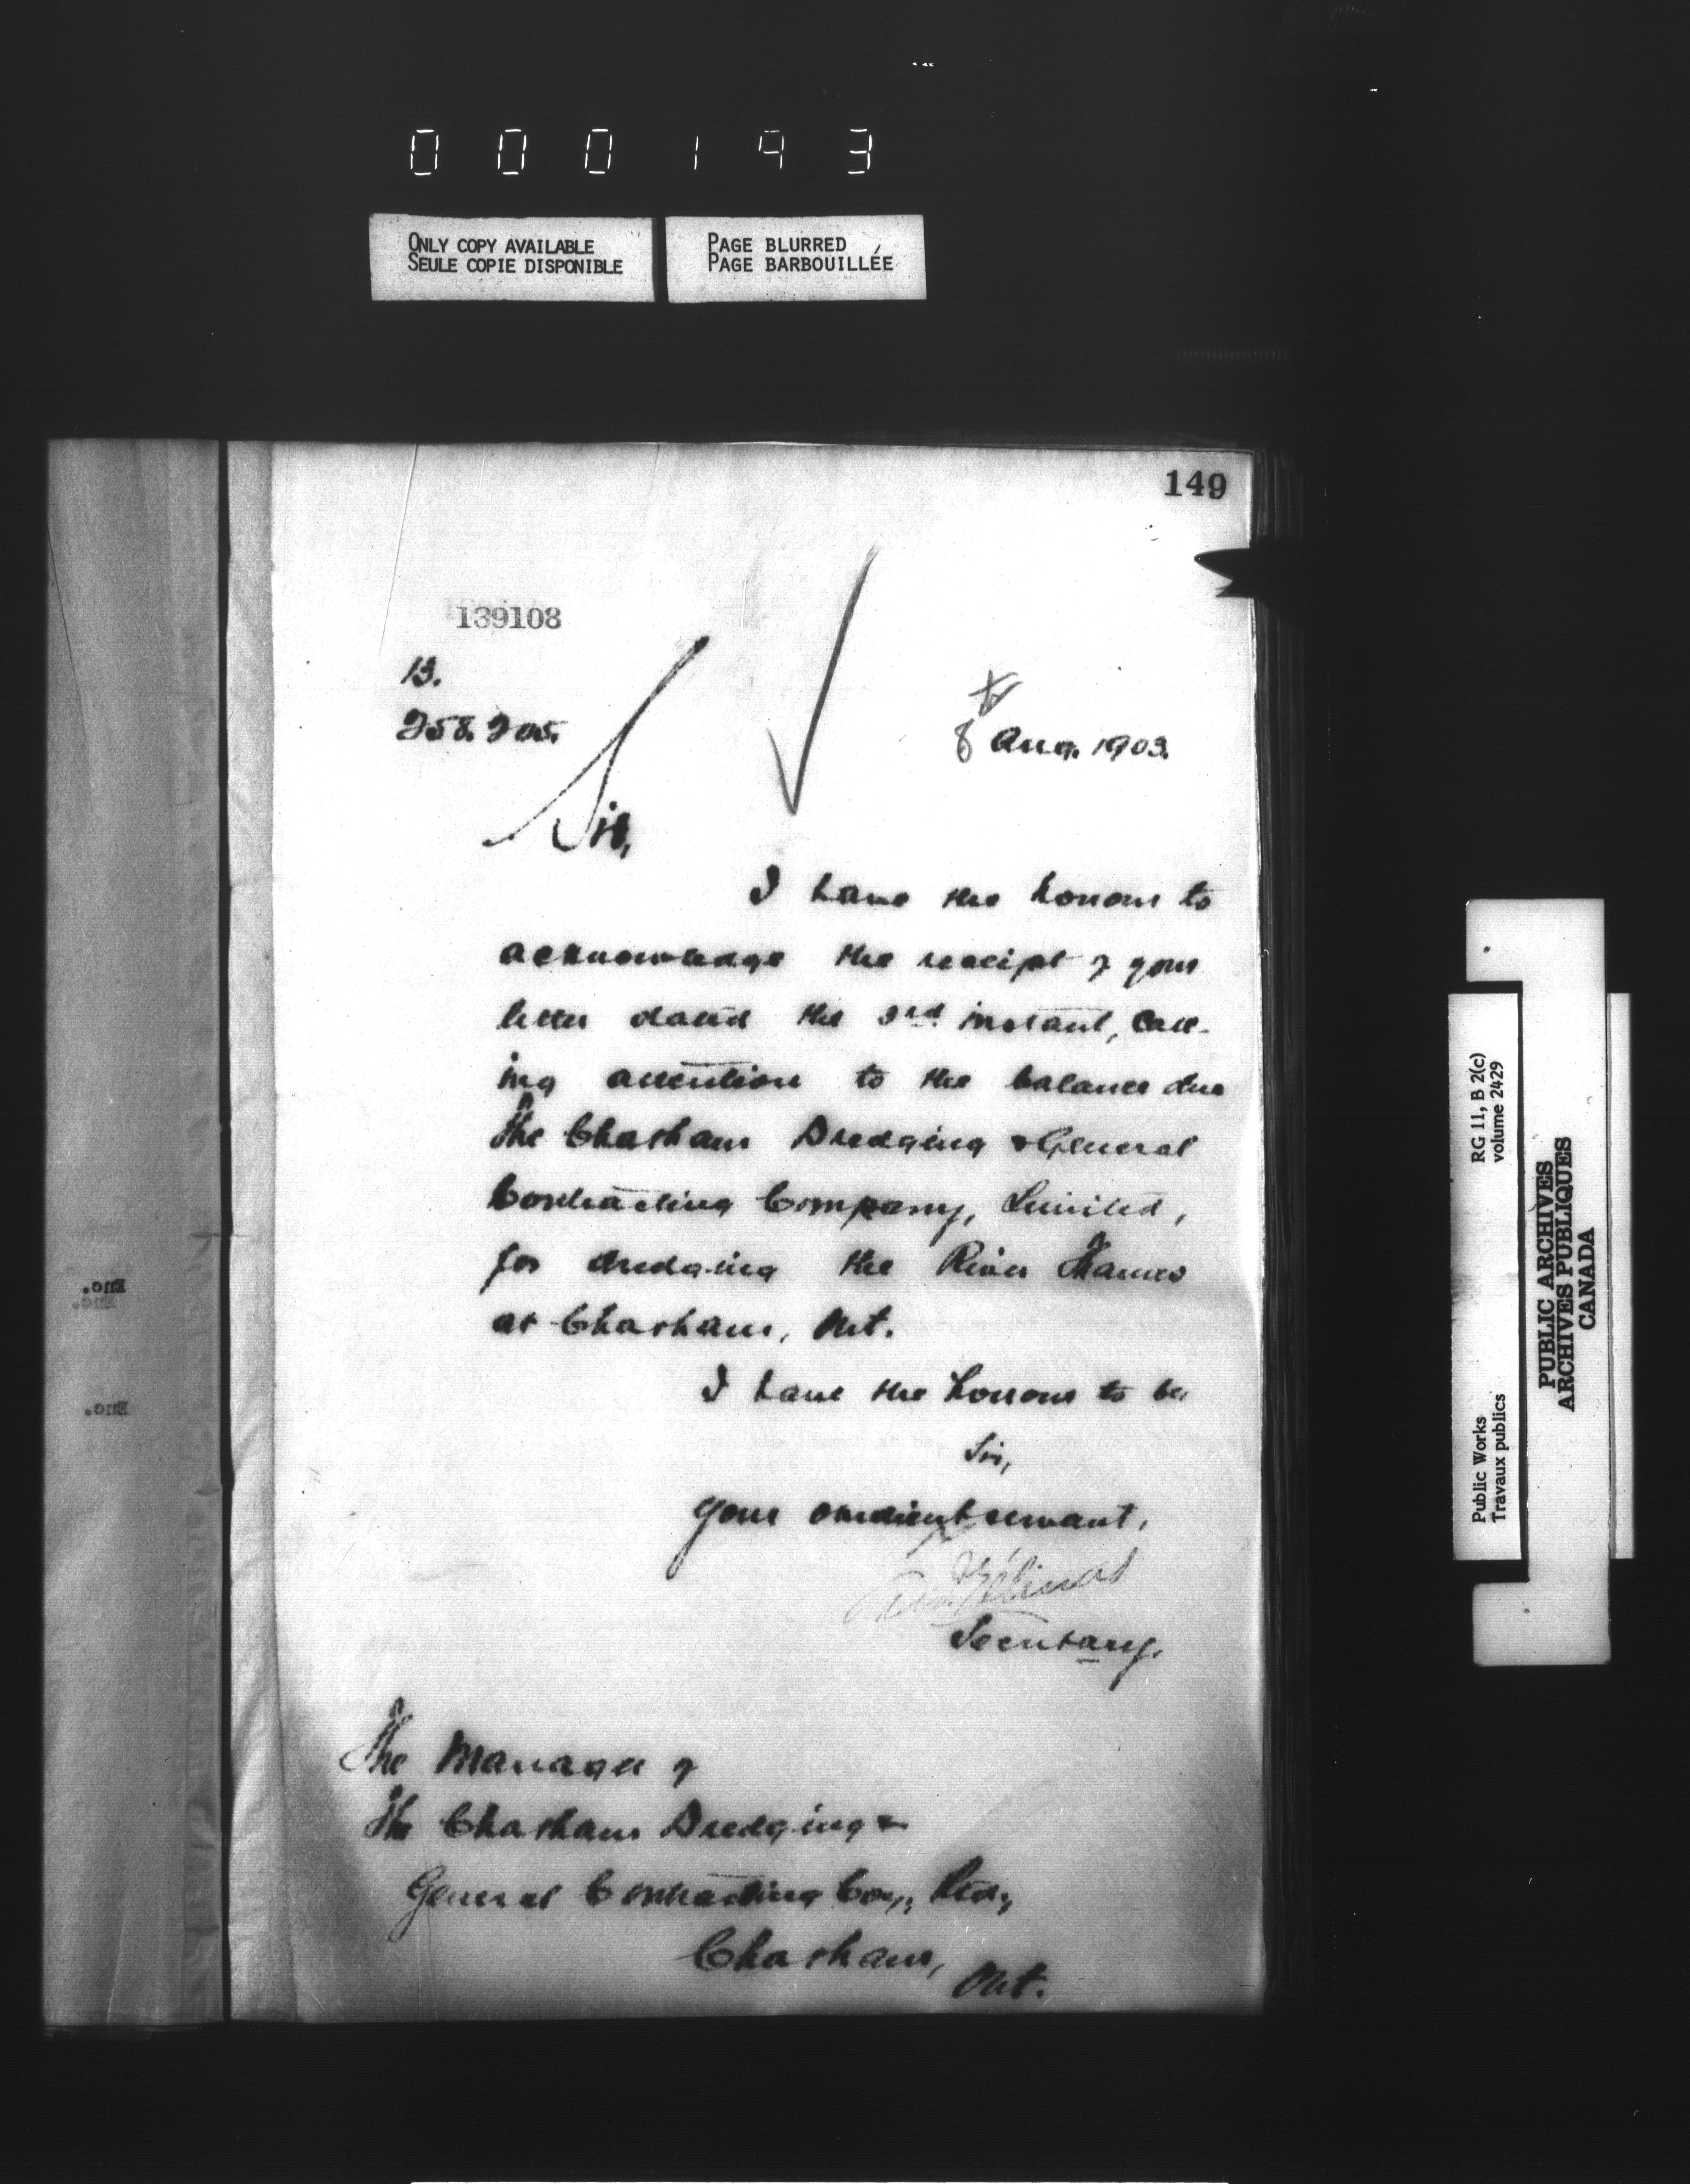 0 0 0 1 9 3
ONLY COPY AVAILABLE
SEULE COPIE DISPONIBLE
PAGE BLURRED
PAGE BARBOUILLÉE
149
139108
13.
258.205.
8th Aug. 1903.
Sir,
I have the honour to
acknowledge the receipt of your
letter dated the 3rd instant, call-
ing attention to the balance due
The Chatham Dredging & General
Contracting Company, Limited,
for dredging the River Thames
at Chatham, Ont.
I have the honour to be,
Sir,
Your obedient servant,
Gélinas
Secretary.
The Manager of
The Chatham Dredging &
General Contracting Coy., Ltd.,
Chatham,
Ont.
Enc.
Enc.
Enc.
RG 11, B 2(c)
volume 2429
Public Works
Travaux publics
PUBLIC ARCHIVES
ARCHIVES PUBLIQUES
CANADA